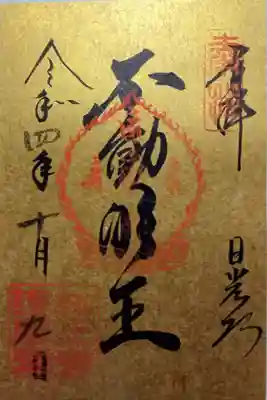 奉拝
日光
不動明王
令和四年十月九日